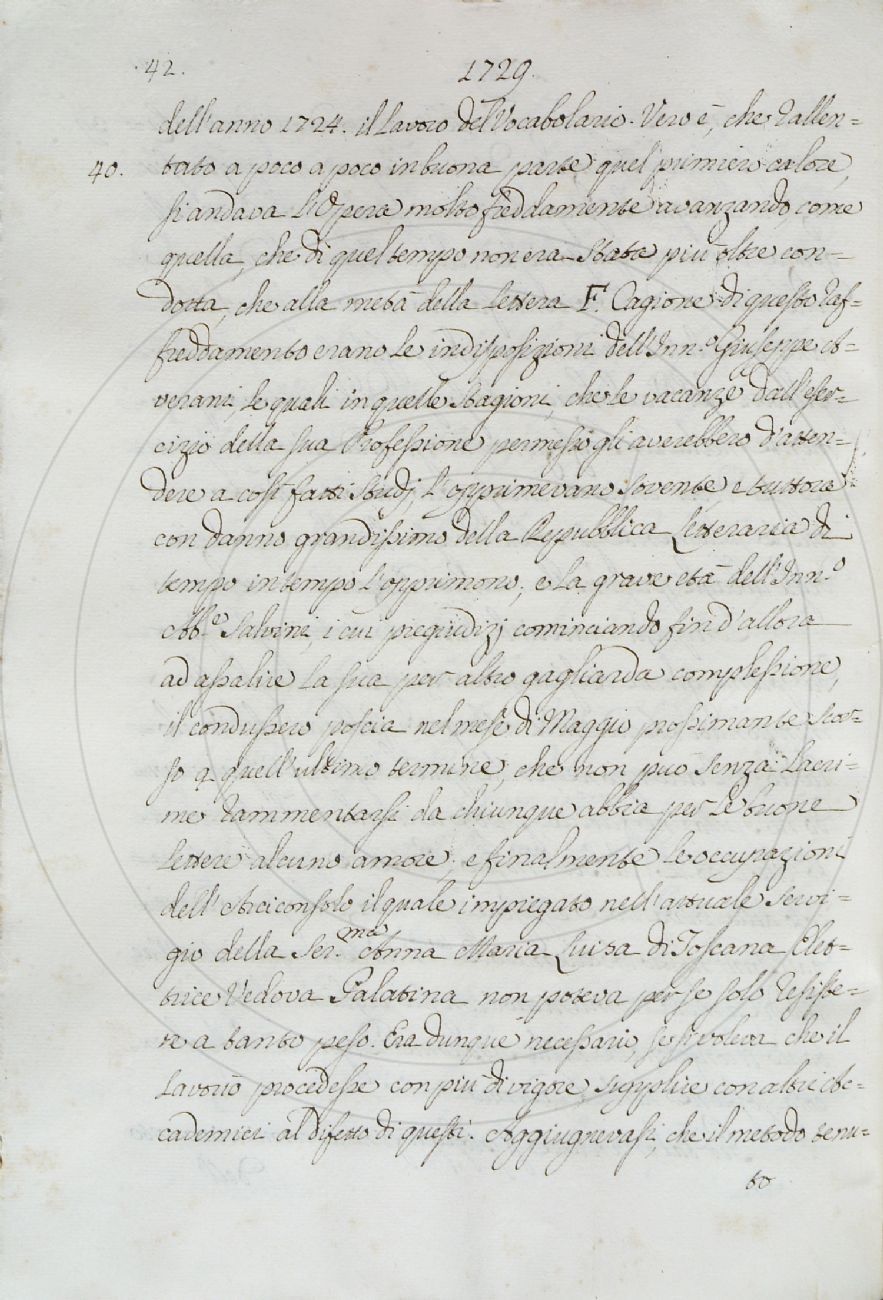 42. 1729.
dell'anno 1724. il Lavoro del Vocabolario. Vero è, che rallen=
40. tato a poco a poco in buona parte quel primiero calore,
si andava l'Opera molto freddamente avanzando, come
quella, che di quel tempo non era stata più oltre con=
dotta, che alla metà della lettera F. Cagione di questo raf=
freddamento erano le indisposizioni dell'Inn.º Giuseppe A=
verani, le quali in quelle stagioni, che le vacanze dall'eser=
cizio della sua Professione permesso gli averebbero d'atten=
dere a così fatti studj, l'opprimevano sovente e tuttora
con danno grandissimo della Repubblica Letteraria di
tempo in tempo l'opprimono; e la grave età dell'Inn.º
Ab.e Salvini, i cui pregiudizj cominciando fin d'allora
ad assalire la sua per altro gagliarda complessione,
il condussero poscia nel mese di Maggio prossimante scor=
so a quell'ultimo termine, che non può senza lacri=
me rammentarsi da chiunque abbia per le buone
Lettere alcuno amore; e finalmente le occupazioni
dell'Arciconsolo il quale impiegato nell'attuale servi=
gio della Ser.ma Anna Maria Luisa di Toscana Elet=
trice Vedova Palatina non poteva per se solo resiste=
re a tanto peso. Era dunque necessario, se si voleva che il
Lavorio procedesse con più di vigore, supplire con altri Ac=
cademici al difetto di questi. Aggiugnevasi, che il metodo tenu=
to